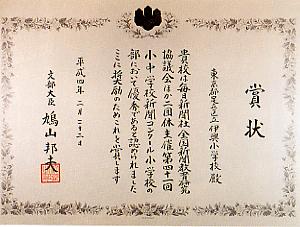 賞状
東京都足立区立伊興小学校 殿
貴校は毎日新聞社全国新聞教育研究
協議会ほか二団体主催第四十一回
小中学校新聞コンクール小学校の
部において優秀であると認められました
ここに奨励のためこれを賞します
平成四年二月二十二日
文部大臣 鳩山邦夫